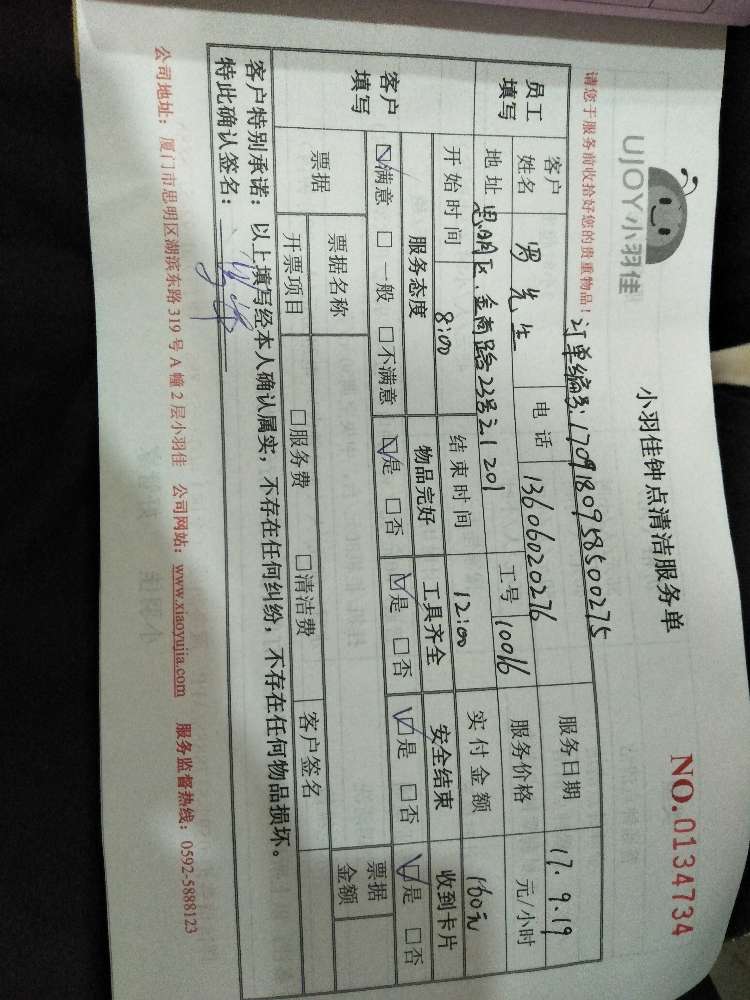 UJOY小羽佳
小羽佳钟点清洁服务单
NO.0134734
请您于服务前收拾好您的贵重物品！
订单编号:1709180958500275
员工填写
客户姓名 罗先生 电话 13606020276 服务日期 17.9.19
地址 思明区.金尚路23号之1 201 工号 10016 服务价格 元/小时
开始时间 8:00 结束时间 12:00 实付金额 160元
客户填写
服务态度 物品完好 工具齐全 安全结束 收到卡片
☑满意 □一般 □不满意 ☑是 □否 ☑是 □否 ☑是 □否 ☑是 □否
票据 票据名称 票据金额
开票项目 □服务费 □清洁费 客户签名
客户特别承诺：以上填写经本人确认属实，不存在任何纠纷，不存在任何物品损坏。
特此确认签名：
公司地址：厦门市思明区湖滨东路 319 号 A 幢 2 层小羽佳 公司网站：www.xiaoyujia.com 服务监督热线：0592-5888123